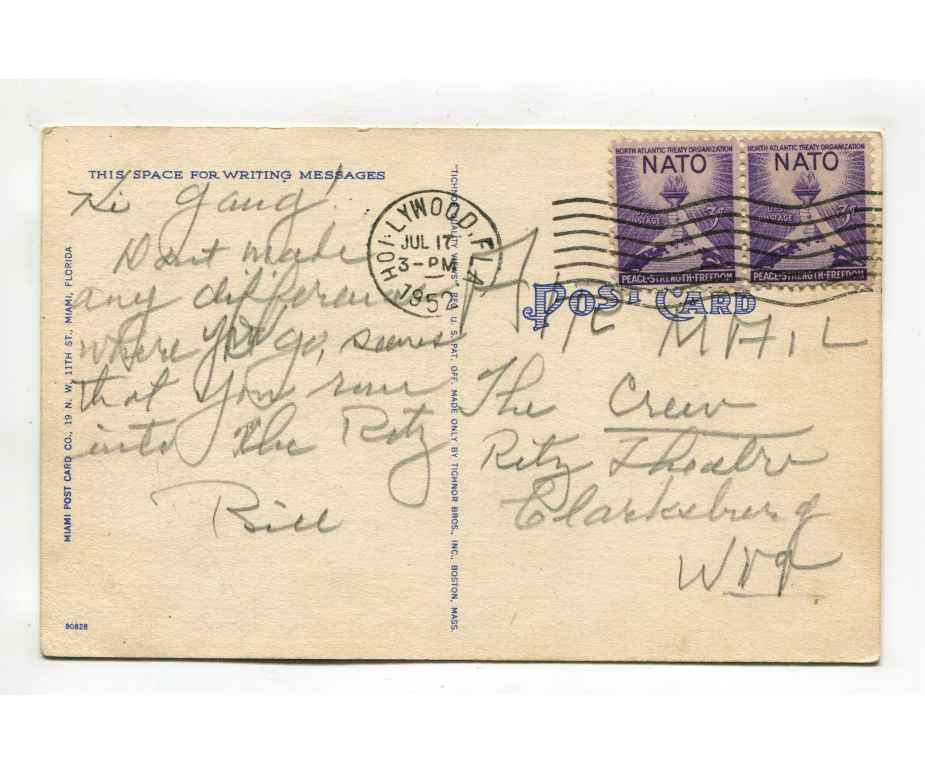 THIS SPACE FOR WRITING MESSAGES
Hi Gang!
Don't make
any difference
where you go, seems
that you run
into the Ritz
Bill
MIAMI POST CARD CO., 19 N. W. 11TH ST., MIAMI, FLORIDA
90828
"TICHNOR QUALITY VIEWS" REG. U. S. PAT. OFF. MADE ONLY BY TICHNOR BROS., INC., BOSTON, MASS.
HOLLYWOOD, FLA.
JUL 17
3-PM
1952
NORTH ATLANTIC TREATY ORGANIZATION
NATO
3¢
U.S. POSTAGE
PEACE·STRENGTH·FREEDOM
NORTH ATLANTIC TREATY ORGANIZATION
NATO
3¢
U.S. POSTAGE
PEACE·STRENGTH·FREEDOM
POST CARD
MAIL
The Crew
Ritz Theatre
Clarksburg
W Va